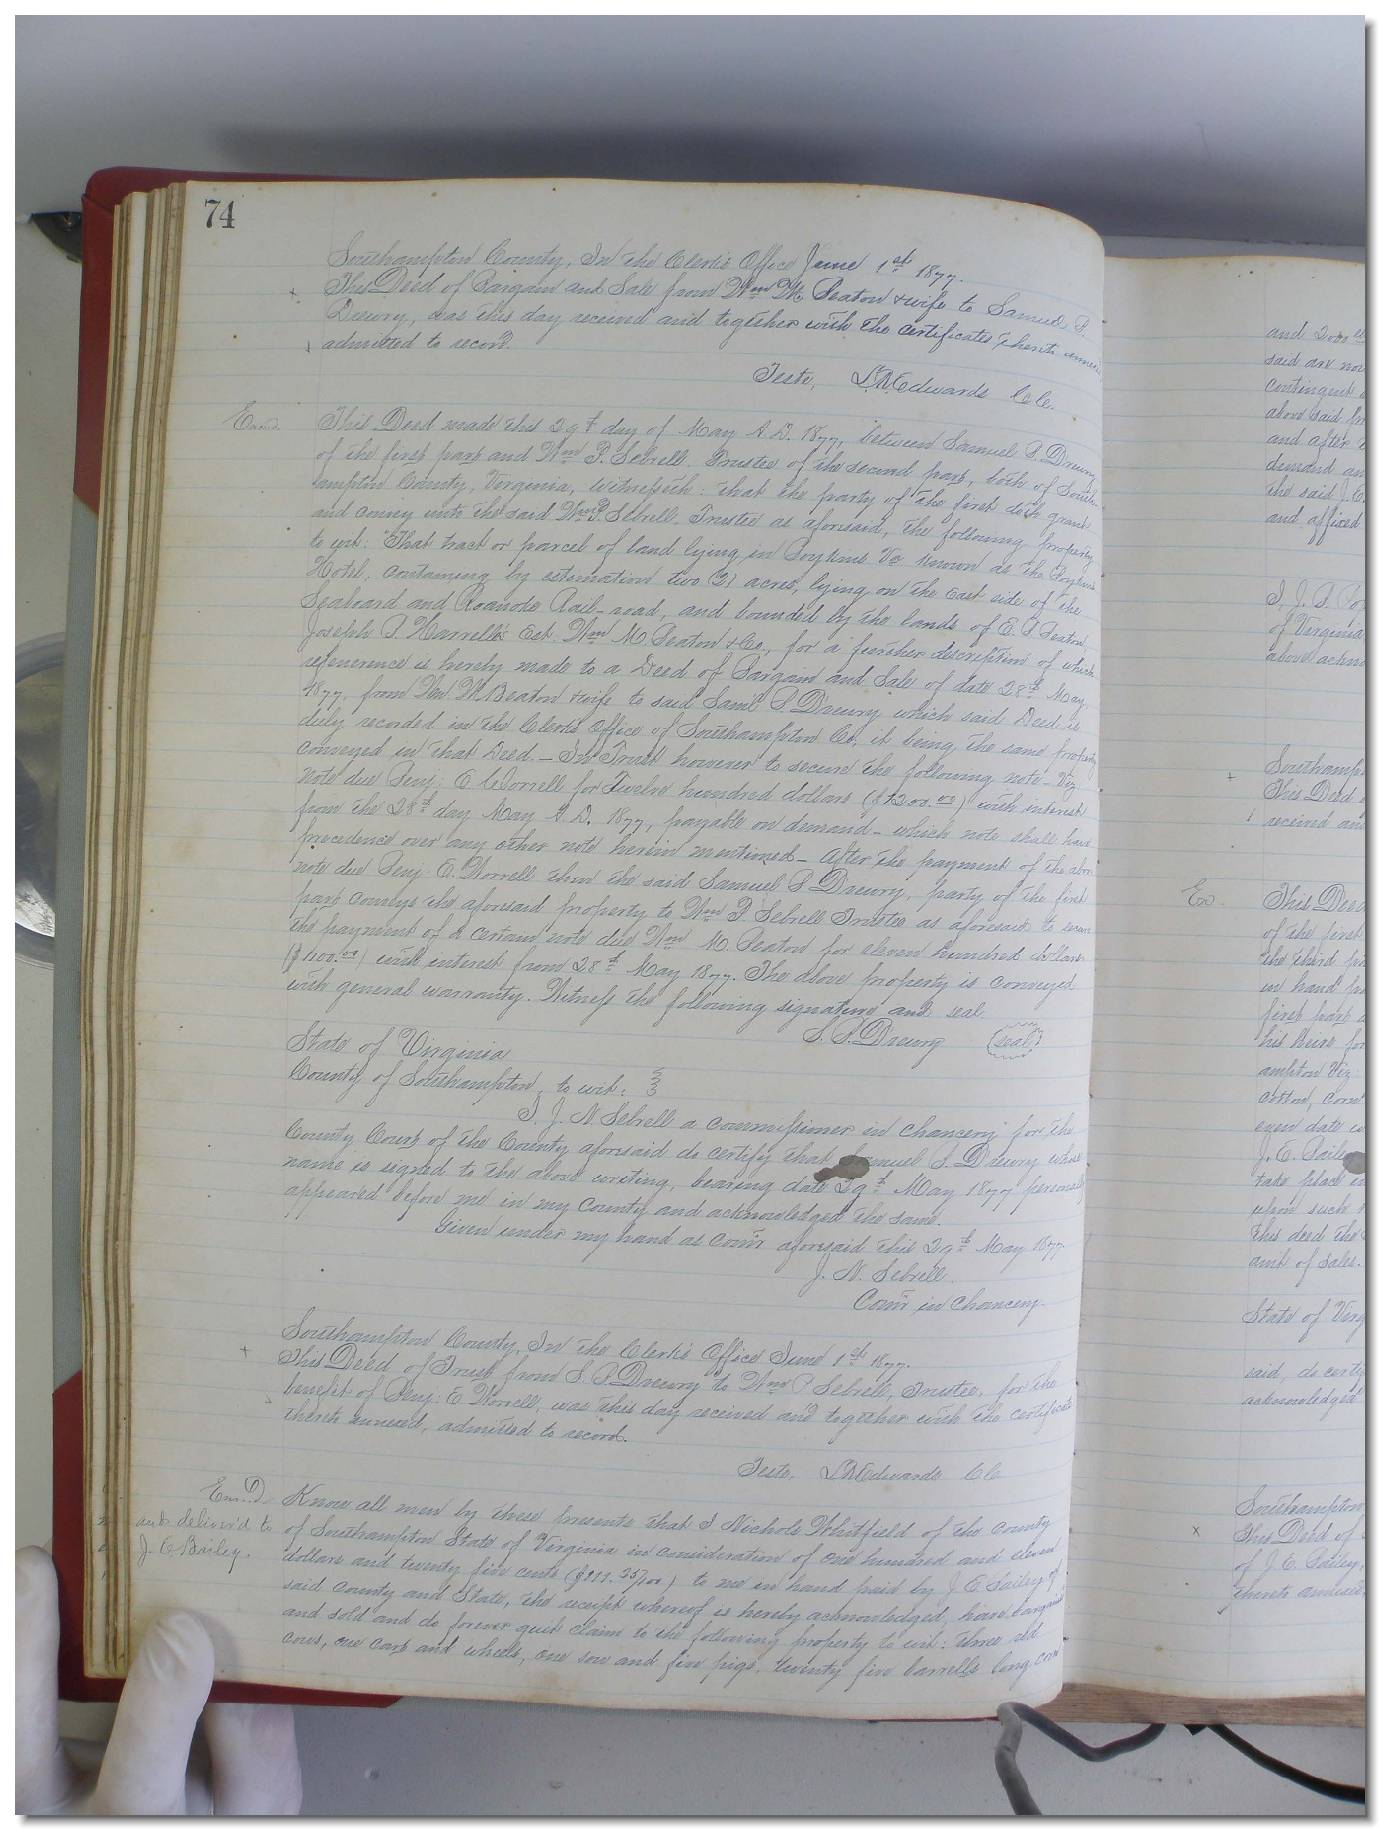 74
Southampton County, In the Clerk's Office June 1st 1877.
This Deed of Bargain and Sale from Wm M. Beaton & wife to Samuel P.
Drewry, was this day received and together with the certificates thereto annexed
admitted to record.
Teste, L. R. Edwards C. C.
Exmd.
This Deed made this 29th day of May A. D. 1877, between Samuel P. Drewry
of the first part and Wm P. Sebrell Trustee of the second part, both of South-
ampton County, Virginia, witnesseth: that the party of the first doth grant
and convey unto the said Wm P. Sebrell Trustee as aforesaid, the following property
to wit: That tract or parcel of land lying in Boykins Va known as the Boykins
Hotel, containing by estimation two (2) acres, lying on the East side of the
Seaboard and Roanoke Rail-road, and bounded by the lands of E. T. Beaton,
Joseph P. Harrell's Est. Wm M. Beaton & Co., for a further description of which
refenerence is hereby made to a Deed of Bargain and Sale of date 28th May,
1877, from Wm M Beaton & wife to said Saml P. Drewry which said Deed is
duly recorded in the Clerk's Office of Southampton Co, it being the same property
conveyed in that Deed. - In Trust however to secure the following note - Viz
Note due Benj: E. Worrell for Twelve hundred dollars ($1200.00) with interest
from the 28th day May A. D. 1877, payable on demand - which note shall have
precedence over any other note herein mentioned - After the payment of the above
note due Benj. E. Worrell then the said Samuel P Drewry, party of the first
part conveys the aforesaid property to Wm P. Sebrell Trustee as aforesaid to secure
the payment of a certain note due Wm M. Beaton for eleven hundred dollars
($1100.00) with interest from 28th May 1877. The above property is conveyed
with general warranty. Witness the following signature and seal.
S. P. Drewry (seal)
State of Virginia
County of Southampton, to wit:
I, J. N. Sebrell a commissioner in chancery for the
County Court of the County aforesaid do certify that Samuel P. Drewry whose
name is signed to the above writing, bearing date 29th May 1877 personally
appeared before me in my County and acknowledged the same.
Given under my hand as Comr aforesaid this 29th May 1877.
J. N. Sebrell.
Comr in Chancery.
Southampton County, In the Clerk's Office June 1st 1877.
This Deed of Trust from S. P. Drewry to Wm P Sebrell, Trustee, for the
benefit of Benj: E Worrell, was this day received and together with the certificate
thereto annexed, admitted to record.
Teste, L R Edwards C C
Exmd
and deliver'd to
J. E. Bailey.
Know all men by these presents that I Nichols Whitfield of the county
of Southampton State of Virginia in consideration of one hundred and eleven
dollars and twenty five cents ($111.25/100) to me in hand paid by J. E Bailey of
said county and State, the receipt whereof is hereby acknowledged, have bargained
and sold and do forever quit claim to the following property to wit: three
cows, one cart and wheels, one sow and five pigs, twenty five barrells long corn
and
said are
contingent
above said
and after
demand
the said J. E.
and affixed
I, J. B.
of Virginia
above
Southampton
This Deed
received and
Ex.
This Deed
of the first
the third
in hand
first part
his heirs for
ampton Viz
cotton, corn
even date
J. E. Bailey
take place in
upon such
this deed the
amt of sales.
State of Virg
said, do certify
acknowledged
Southampton
This Deed of
of J. E. Bailey,
thereto annexed